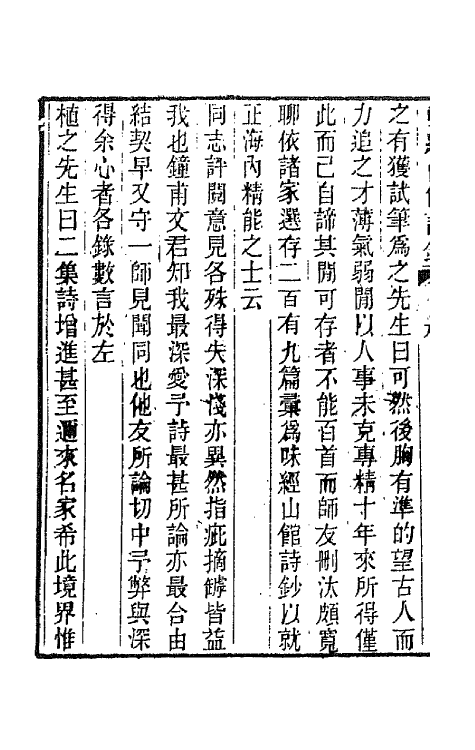 之有獲試筆爲之先生曰可然後胸有準的望古人而
力追之才薄氣弱閒以人事未克專精十年來所得僅
此而已自諦其閒可存者不能百首而師友刪汰頗寬
聊依諸家選存二百有九篇彙爲味經山館詩鈔以就
正海內精能之士云
同志評閱意見各殊得失深淺亦異然指疵摘罅皆益
我也鐘甫文君知我最深愛予詩最甚所論亦最合由
結契早又守一師見聞同也他友所論切中予弊與深
得余心者各錄數言於左
植之先生曰二集詩增進甚至邇來名家希此境界惟